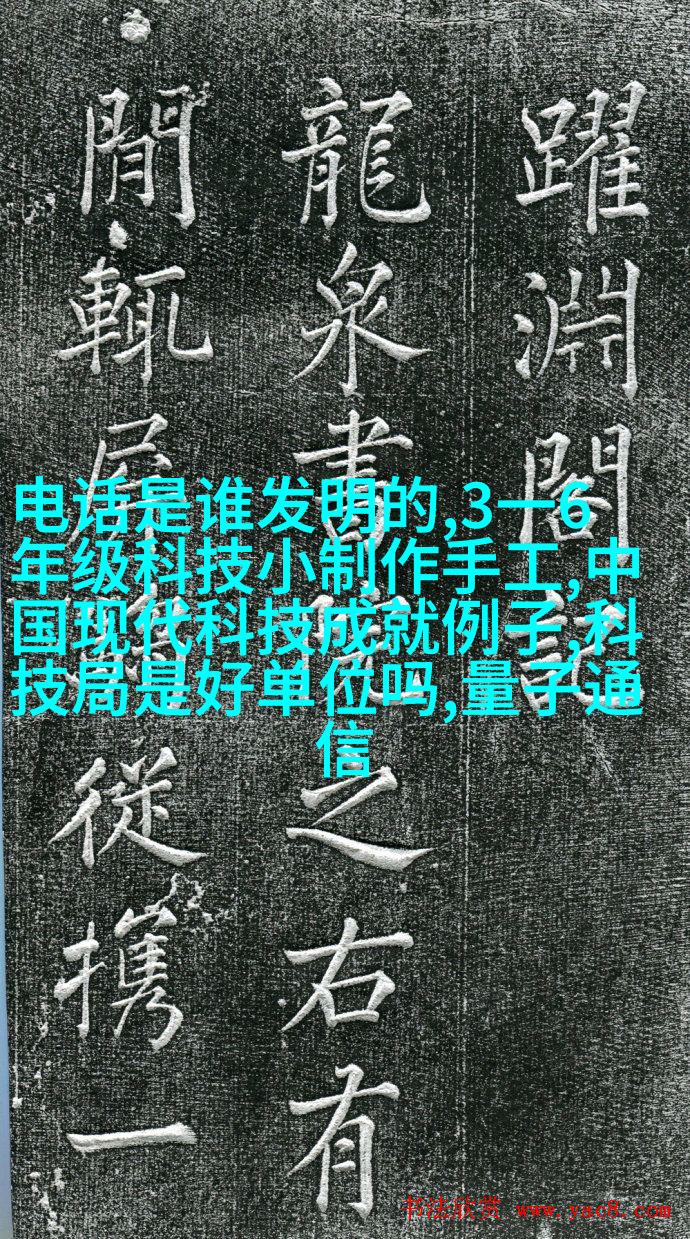 躍淵閣記
龍泉書院之右有
閒輒屏從擕一
电话是谁发明的,3一6
年级科技小制作手工,中
国现代科技成就例子,科
技局是好单位吗,量子通
信
书法欣赏 www.yac8.com